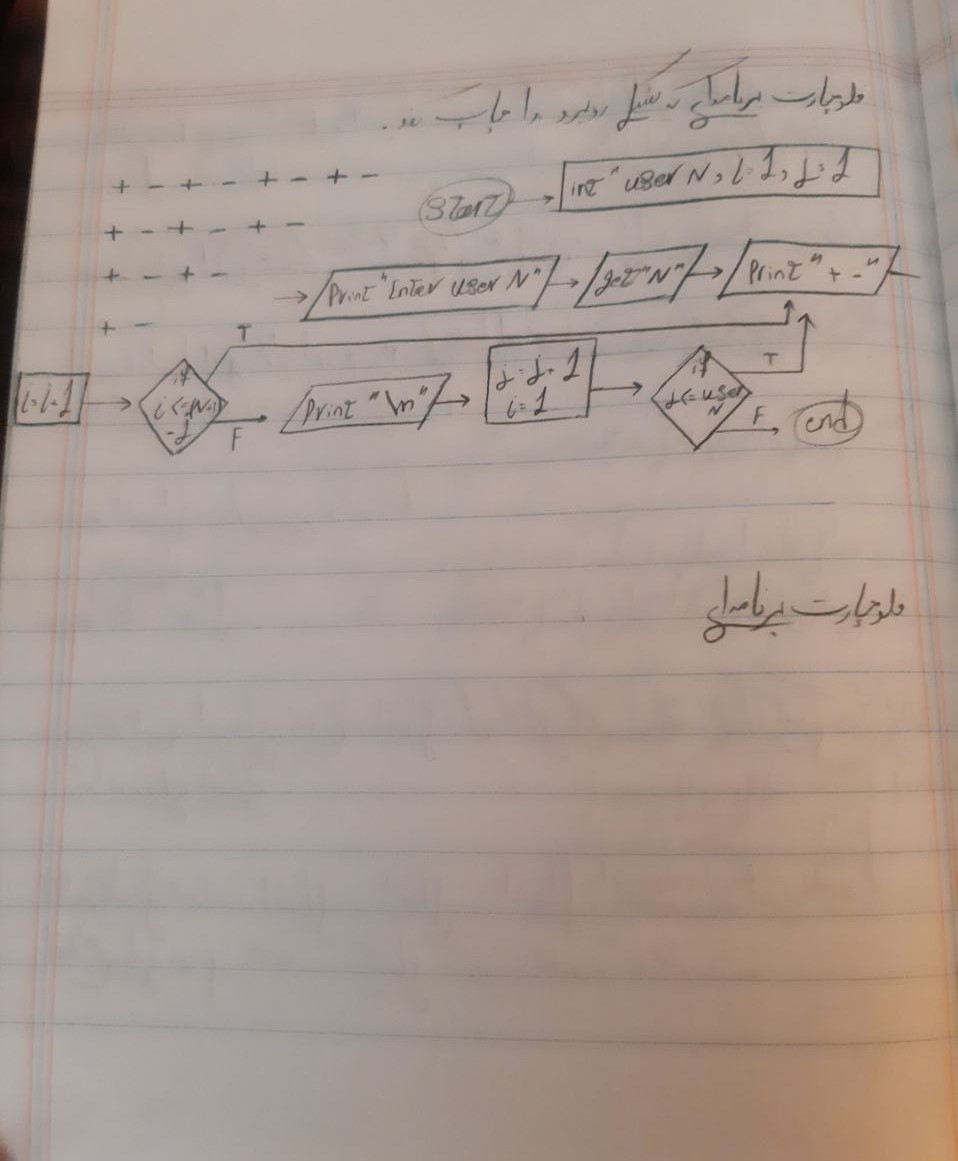 فلوچارت برنامه‌ای که شکل روبرو را چاپ کند.
+ - + - + - + -
+ - + - + -
+ - + -
+ -
Start
int " user N , i = 1 , j = 1
Print "Enter user N"
get "N"
Print " + - "
i = i + 1
if i <= (N+1) - j
T
F
Print "\n"
j = j + 1
i = 1
if j <= user N
T
F
end
فلوچارت برنامه‌ای